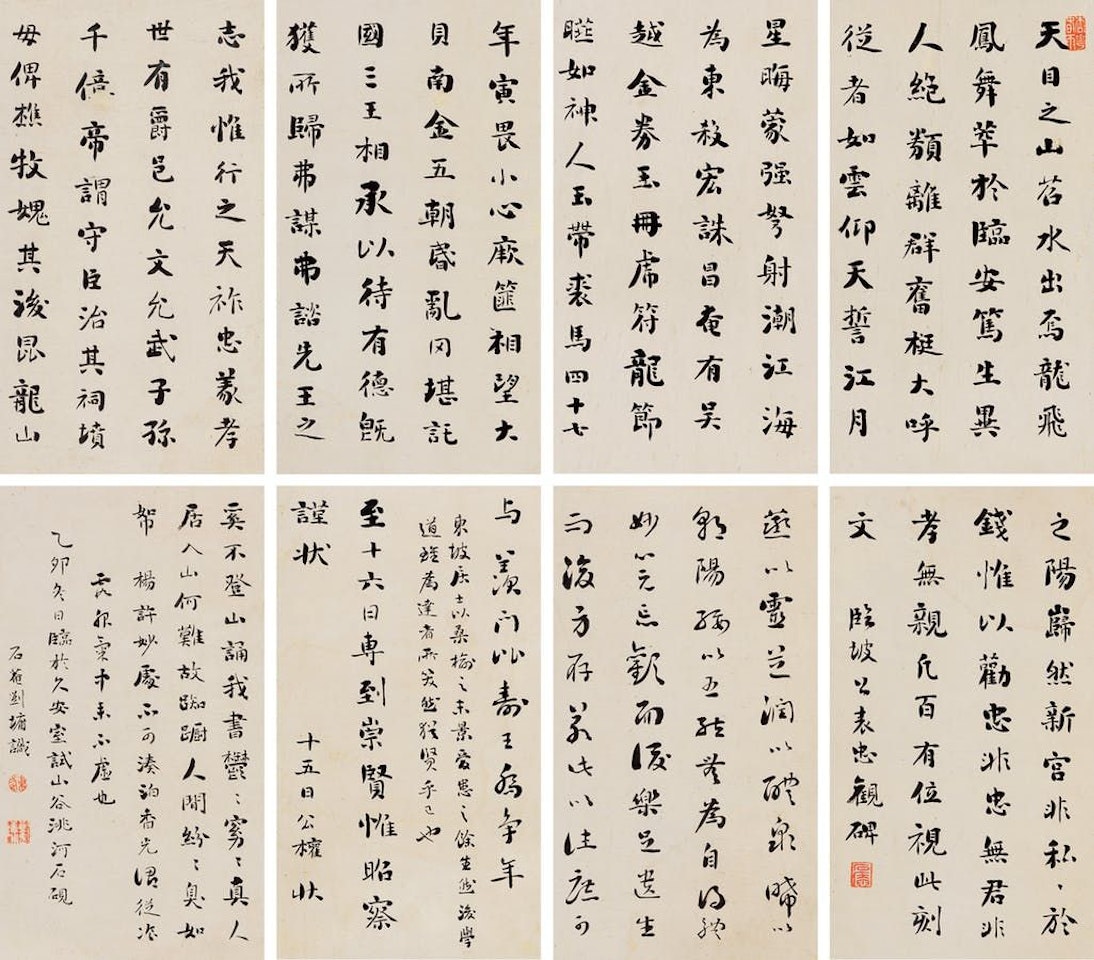 天目之山苕水出焉龍飛
鳳舞萃於臨安篤生異
人絕類離群奮梃大呼
從者如雲仰天誓江月
星晦蒙强弩射潮江海
為東殺宏誅昌奄有吳
越金券玉冊虎符龍節
曄如神人玉帶裘馬四十七
年寅畏小心厥篚相望大
貝南金五朝昏亂罔堪託
國三王相承以待有德既
獲所歸弗謀弗諮先王之
志我惟行之天祚忠義孝
世有爵邑允文允武子孫
千億帝謂守臣治其祠墳
毋俾樵牧愧其後昆龍山
之陽巋然新宮非私〻於
錢惟以勸忠非忠無君非
孝無親凡百有位視此刻
文 臨坡公表忠觀碑
蒸以靈芝潤以醴泉晞以
朝陽綏以五弦無為自得體
妙心玄忘歡而後樂足遺生
而後身存若此以往庶可
与羨門比壽王喬爭年
東坡居士以桑榆之末景憂患之餘生然後學
道雖為達者所笑然猶賢乎已也
至十六日專到崇賢惟昭察
謹狀 十五日公權狀
奚不登山誦我書鬱〻窈〻真人
居入山何難故踟躕人間紛〻臭如
帤 楊許妙處不可湊泊香光謂從冷
氣中來不虛也
乙卯冬日臨於久安室試山谷洮河石硯
石菴劉墉識